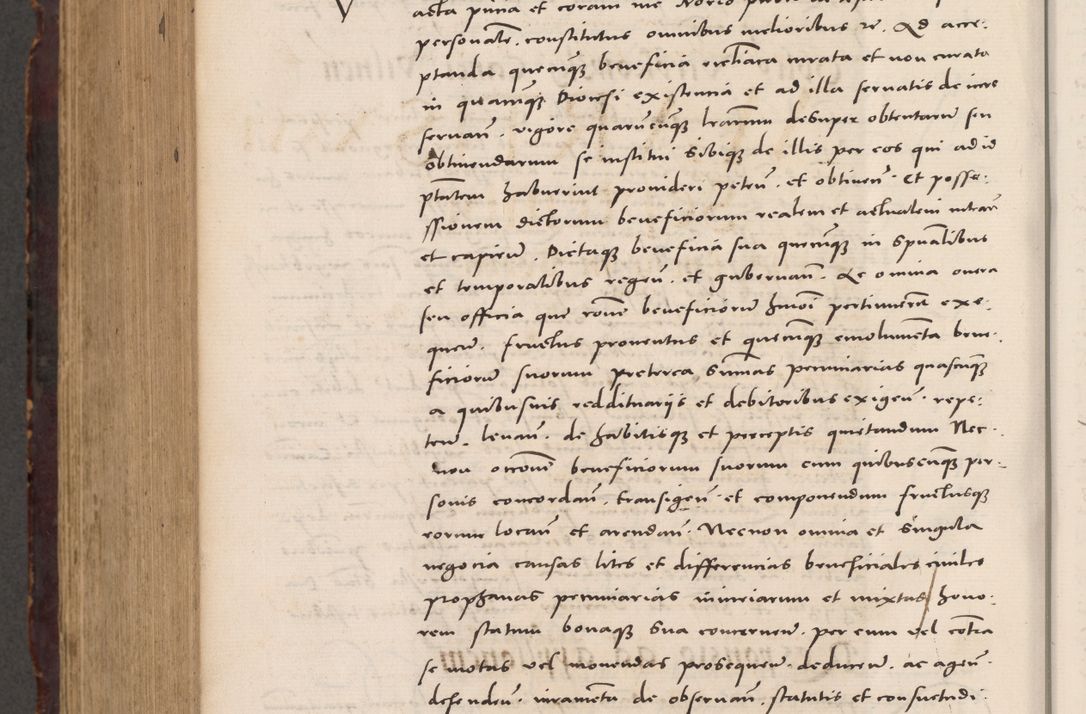 acta pnńa et coram me Notario
personalr̃. constitutus omnibus melioribus rc̃. Ad acce-
ptanda quecunqꝫ beneficia eccl̃iaca curata et non curata
in quacunqꝫ Diocesi existencia et ad illa servatis de iure
servañ. vigore quarucunqꝫ lr̃arum desuper obtentarũ seu
obtinendarum se institui sibiqꝫ de illis per eos qui ad id
ptãtem habuerint provideri peteñ. et obtineñ. Et posse-
ssionem dictorum beneficiorum realem et actualem intrañ
et capieñ. Dictaqꝫ beneficia sua quecunqꝫ in spũalibus
et temporalibus regeñ. et gubernañ. Ac omnia onera
seu officia que rõne beneficiorũ hmõi pertinuerũ exe-
queñ. fructus proventus et quecunqꝫ emolumẽta bene-
ficiorũ suorum preterea sum̃as pecuniarias quascunqꝫ
a quibusuis reddituarijs et debitoribus exigeñ. repe-
teñ. levañ. de habitisqꝫ et perceptis quietandum Nec-
non occõne beneficiorum suorum cum quibuscunqꝫ per-
sonis concordañ. transigeñ. et componendum fructusqꝫ
eorum locañ et arendañ. Necnon omnia et singula
negocia causas lites et differencias beneficiales civiles
prophanas pecuniarias iniuriarum et mixtas hono-
rem statum bonaqꝫ sua concerneñ. per eum vel cõtra
se motas vel movendas prosequeñ. deduceñ. ac ageñ.
defendeñ. iuramẽta de observañ. statutis et consuetudi-